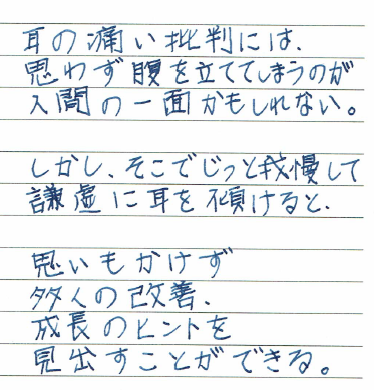 耳の痛い批判には、
思わず腹を立ててしまうのが
人間の一面かもしれない。
しかし、そこでじっと我慢して
謙虚に耳を傾けると、
思いもかけず
多くの改善、
成長のヒントを
見出すことができる。